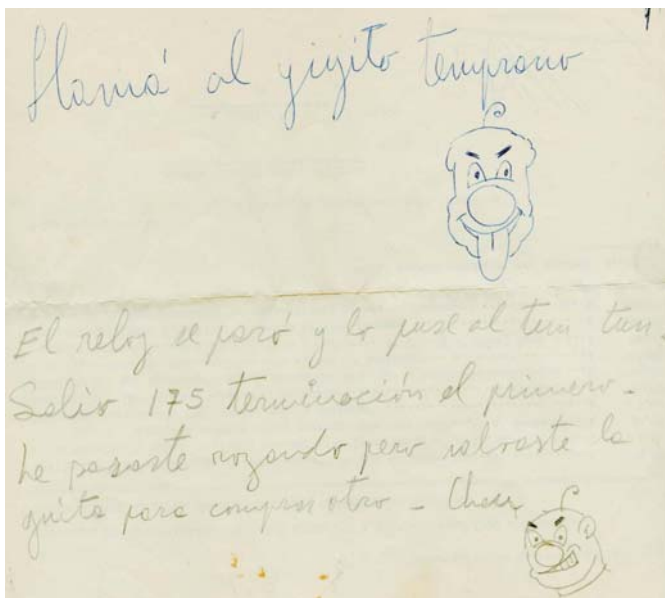 Llamá al yiyito temprano
El reloj se paró y lo puse al tun tun.
Salio 175 terminación el primero -
Le pasaste rozando pero salvaste la
guita para comprar otro - Chau